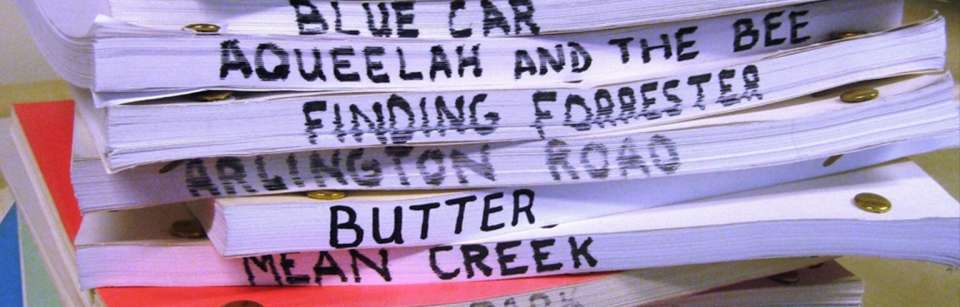 BLUE CAR
AQUEELAH AND THE BEE
FINDING FORRESTER
ARLINGTON ROAD
BUTTER
MEAN CREEK